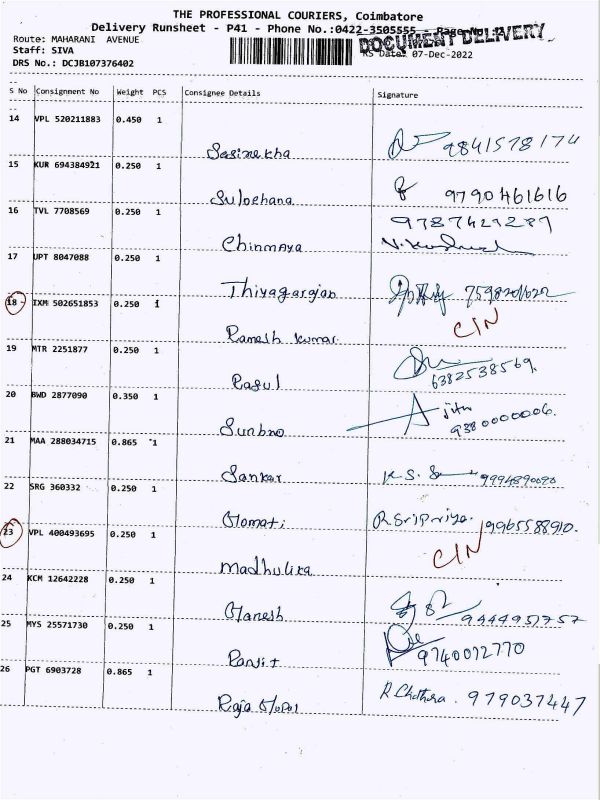 THE PROFESSIONAL COURIERS, Coimbatore
Delivery Runsheet - P41 - Phone No.:0422-3505555 - Page No :2
DOCUMENT DELIVERY
Route: MAHARANI AVENUE
Staff: SIVA
RS Date: 07-Dec-2022
DRS No.: DCJB107376402
S No Consignment No Weight PCS Consignee Details Signature
14 VPL 520211883 0.450 1
9841578174
15 KUR 694384921 0.250 1
Sulochana 9790461616
16 TVL 7708569 0.250 1
Chinmaya
17 UPT 8047088 0.250 1
Thiyagarajan
18 IXM 502651853 0.250 1
Ramesh kumar CIN
19 MTR 2251877 0.250 1
Rasul 6382538569.
20 BWD 2877090 0.350 1
9380000006.
21 MAA 288034715 0.865 1
Sankar K.S.
22 SRG 360332 0.250 1
Gomati R.Sripriya. 9965588910.
23 VPL 400493695 0.250 1
Madhulika CIN
24 KCM 12642228 0.250 1
Ganesh 9444951757
25 MYS 25571730 0.250 1
Ranjit 9740072770
26 PGT 6903728 0.865 1
Raja Gopal 979037447